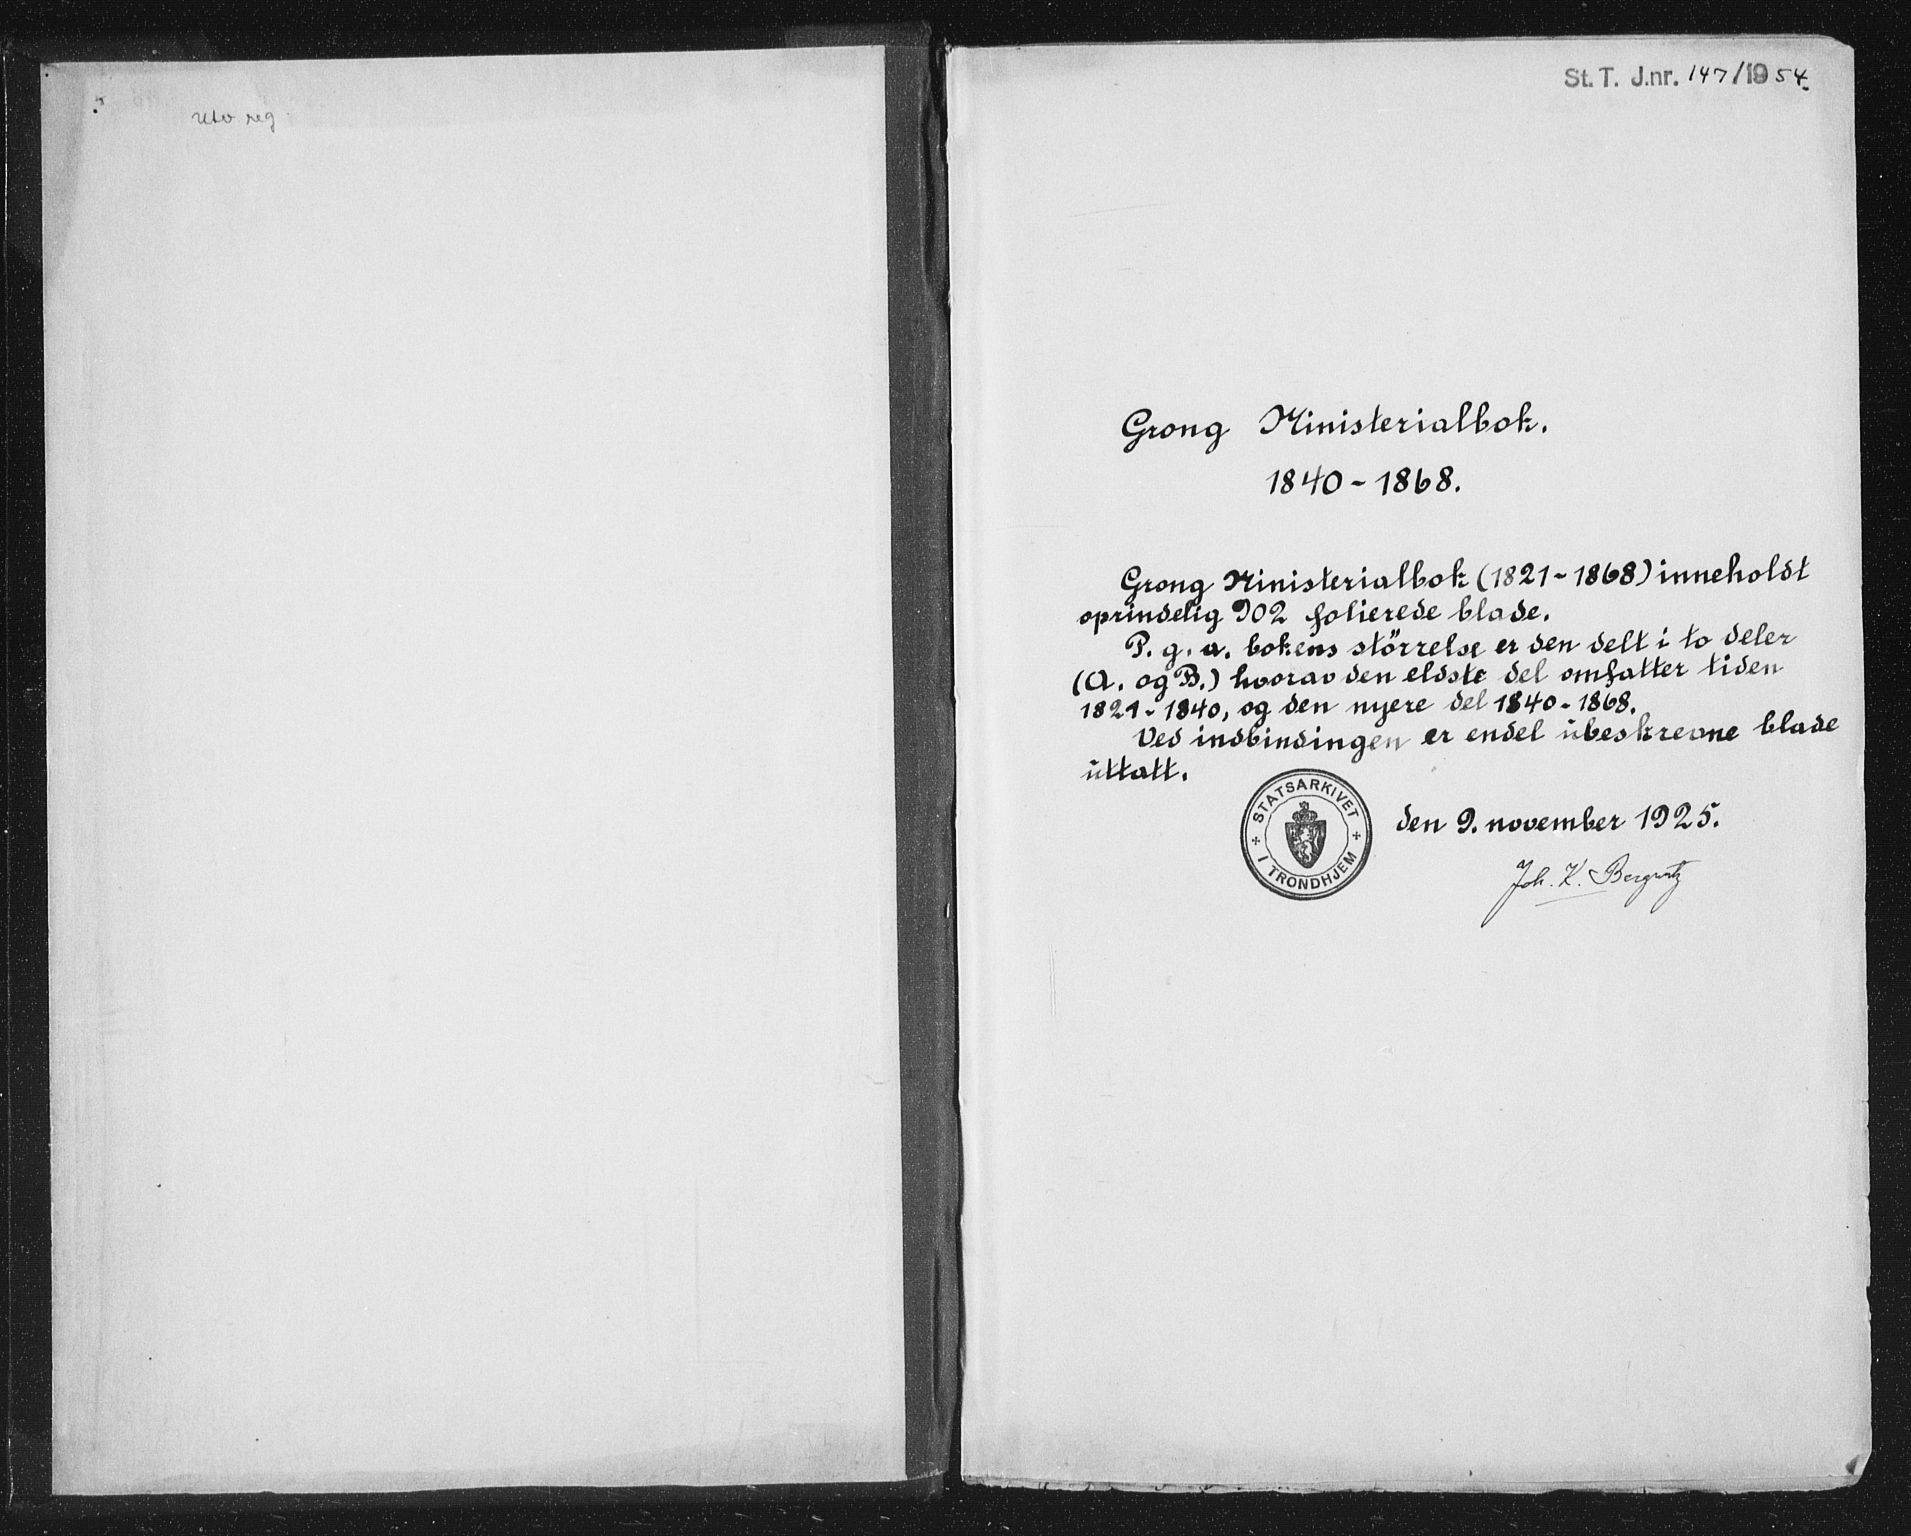 utv reg
St. T. J.nr. 147/1954.
Grong Ministerialbok.
1840-1868.
Grong Ministerialbok (1821-1868) inneholdt
oprindelig 902 folierede blade.
P. g. a. bokens större​lse er den delt i to deler
(A. og B.) hvorav den eldste del omfatter tiden
1821-1840, og den nyere del 1840-1868.
Ved indbindingen er endel ubeskrevne blade
uttatt.
STATSARKIVET
I TRONDHJEM
den 9. november 1925.
Joh. K. Bergwitz